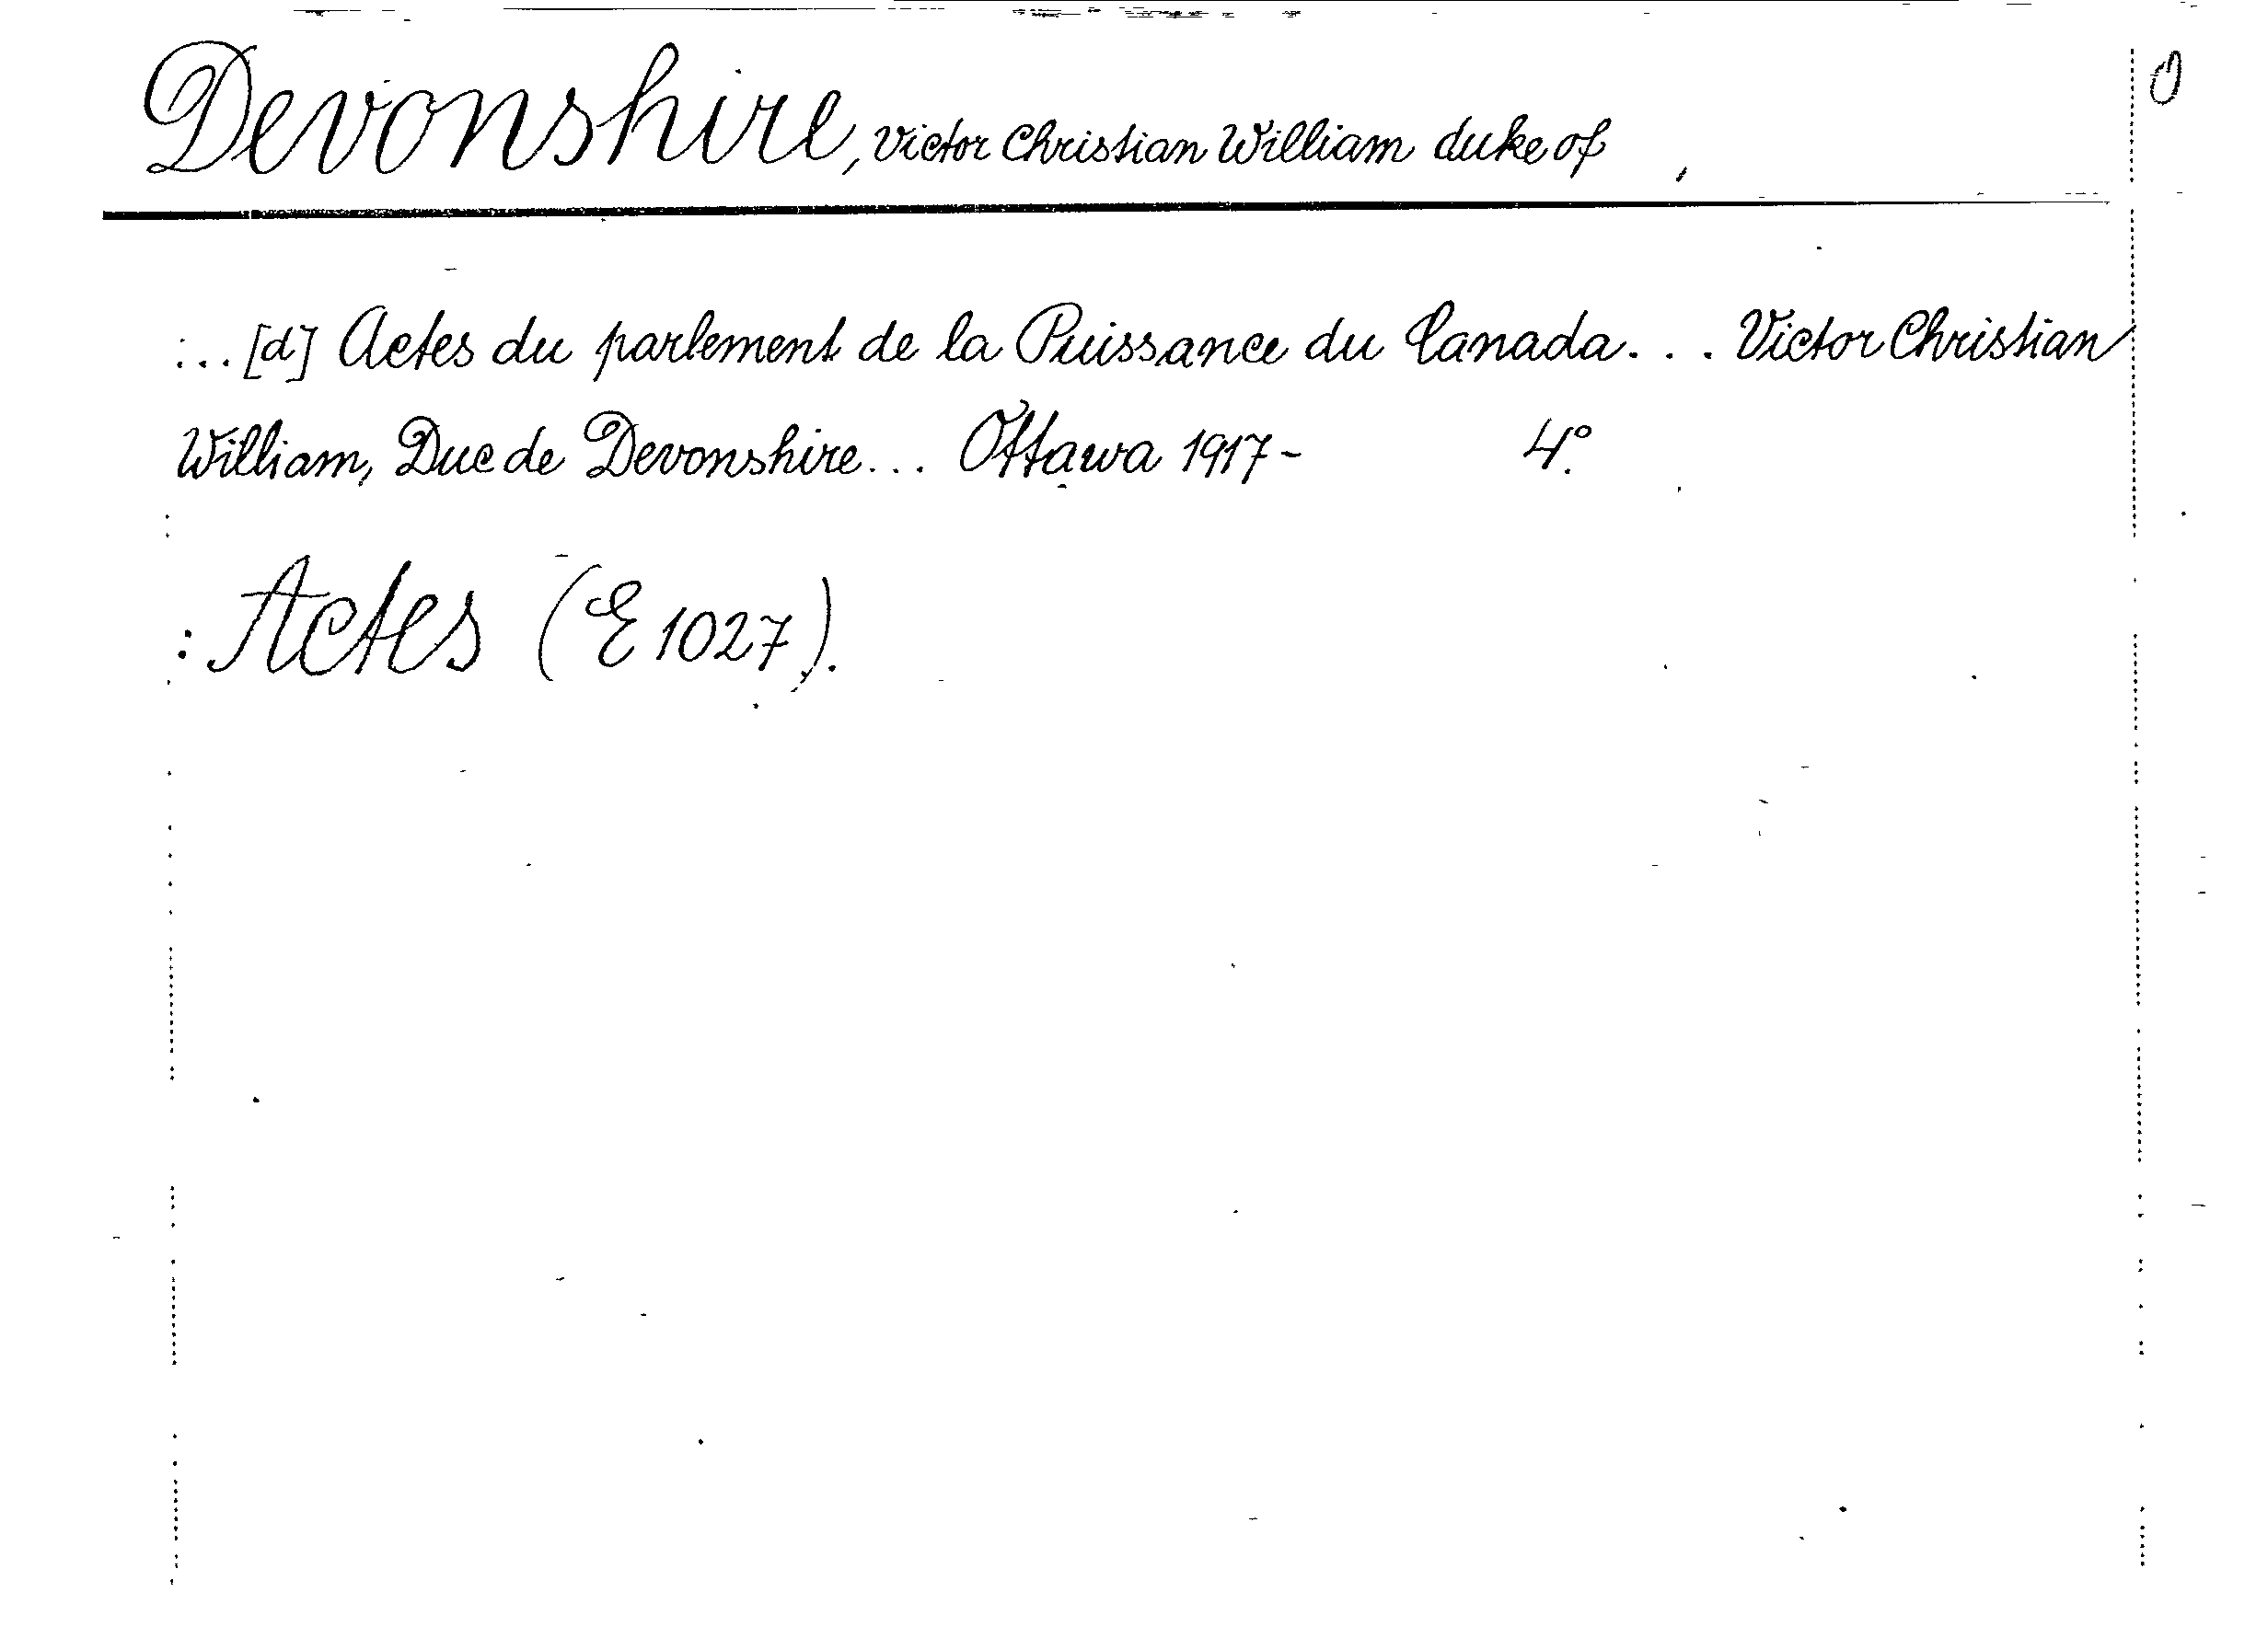 Devonshire, Victor Christian William duke of
... [d] Actes du parlement de la Puissance du Canada... Victor Christian
William, Duc de Devonshire... Ottawa 1917- 4°.
: Actes (E 1027).